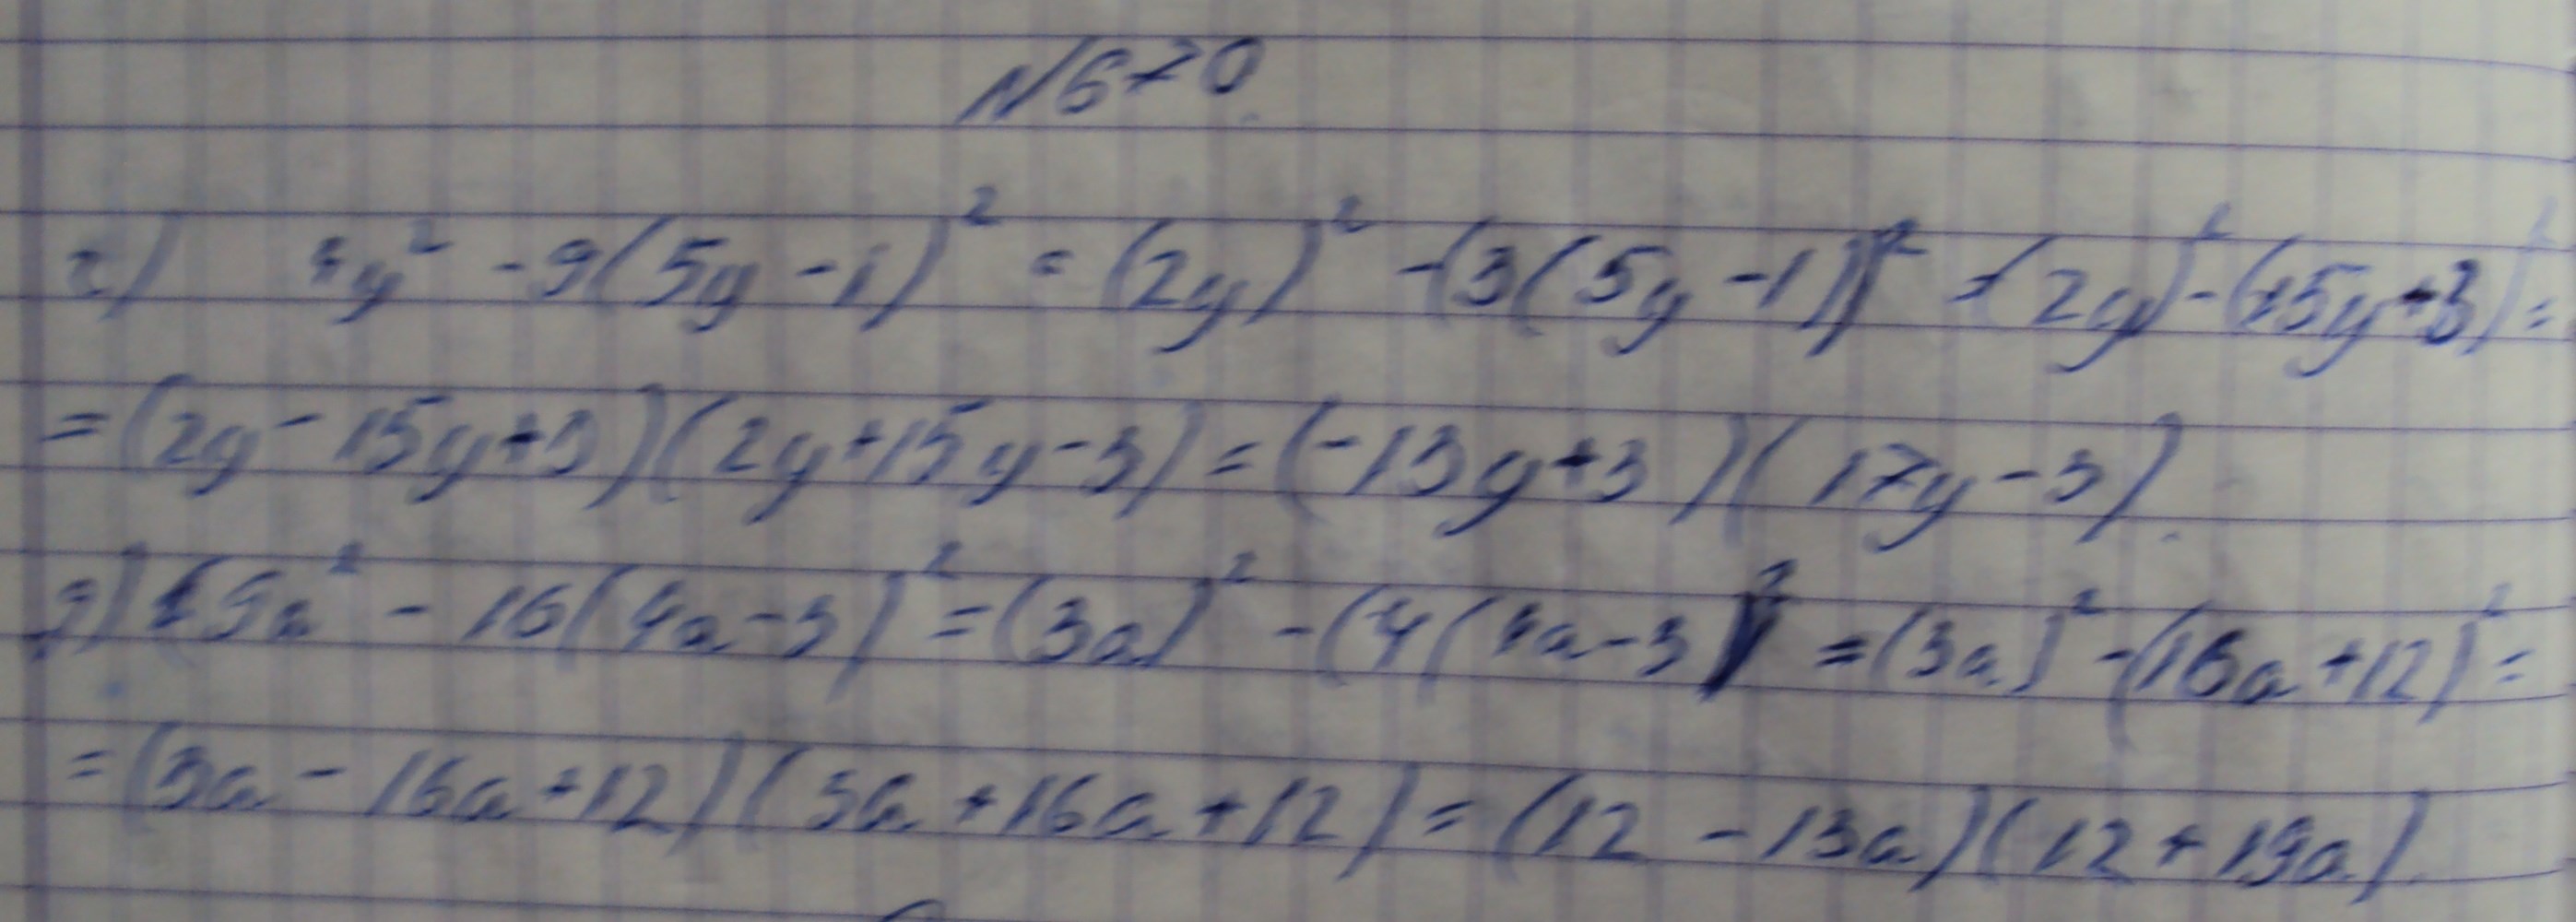 №670.
г) 4y² - 9(5y - 1)² = (2y)² - (3(5y - 1))² = (2y)² - (15y + 3)² =
= (2y - 15y + 3)(2y + 15y - 3) = (-13y + 3)(17y - 3).
д) 9a² - 16(4a - 3)² = (3a)² - (4(4a - 3))² = (3a)² - (16a + 12)² =
= (3a - 16a + 12)(3a + 16a + 12) = (12 - 13a)(12 + 19a).